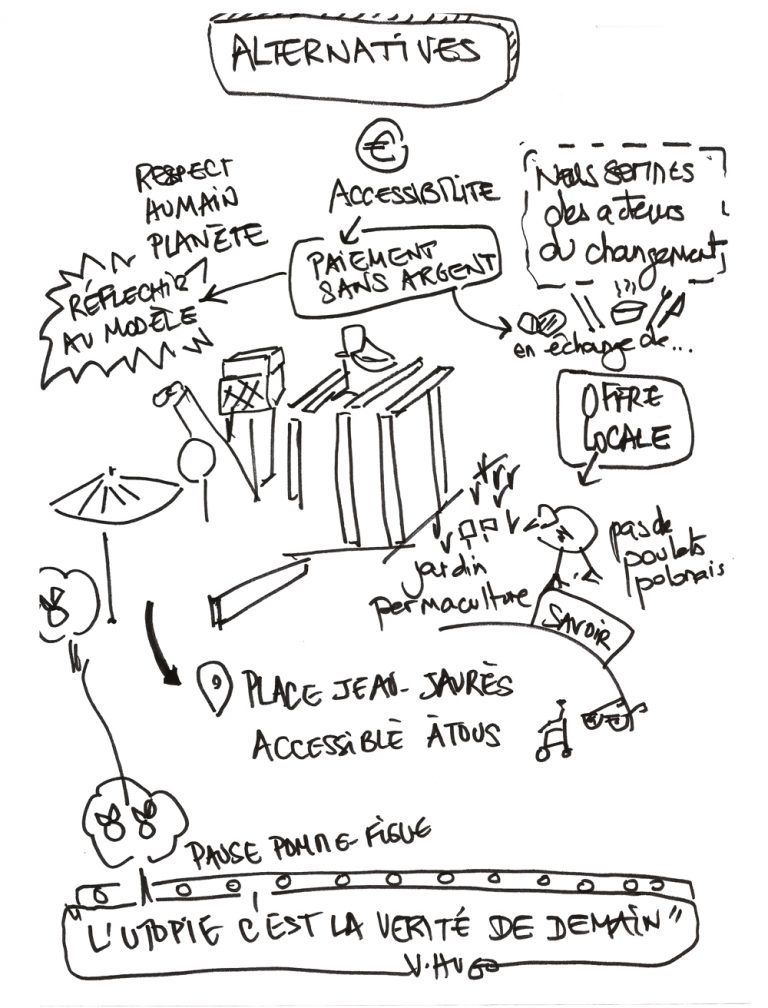 ALTERNATIVES
€
ACCESSIBILITE
RESPECT
HUMAIN
PLANÈTE
NOUS SOMMES
des acteurs
du changement
PAIEMENT
SANS ARGENT
RÉFLECHIR
AU MODÈLE
en échange de...
OFFRE
LOCALE
pas de
poulets
polonais
jardin
permaculture
SAVOIR
PLACE JEAN-JAURÈS
ACCESSIBLE À TOUS
PAUSE POMME-FIGUE
"L'UTOPIE C'EST LA VERITÉ DE DEMAIN"
V.HUGO